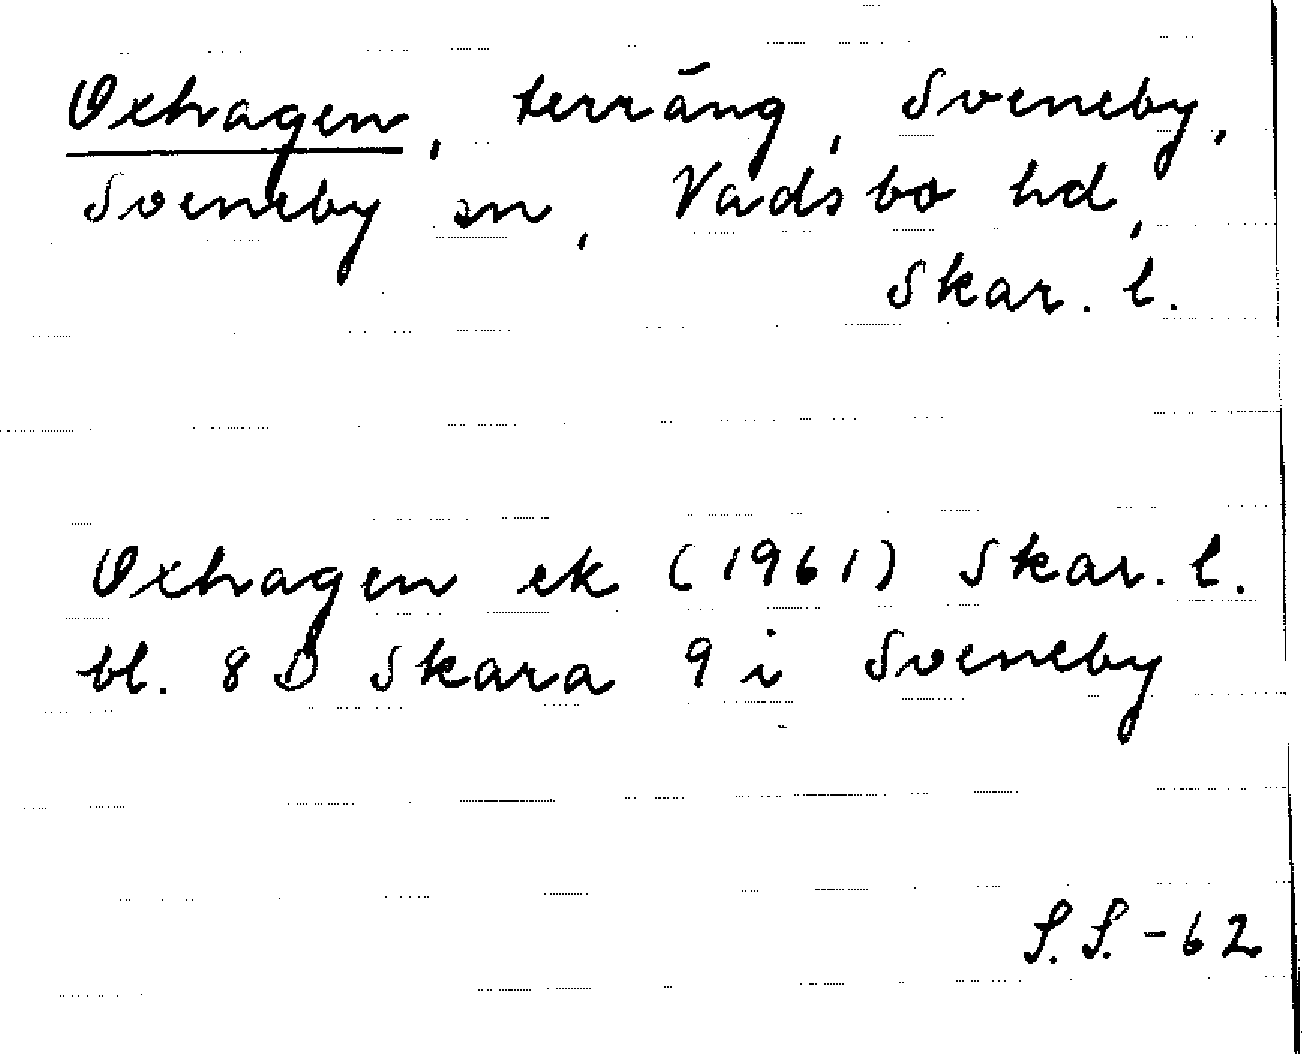 Oxhagen, terräng, Sveneby,
Sveneby sn, Vadsbo hd,
Skar. l.
Oxhagen ek (1961) Skar. l.
bl. 8 D Skara 9 i Sveneby
S.S.-62